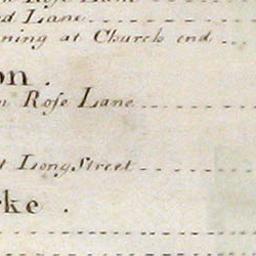 d Lane
ning at Church end
on.
n Rose Lane
t Long Street
rke.